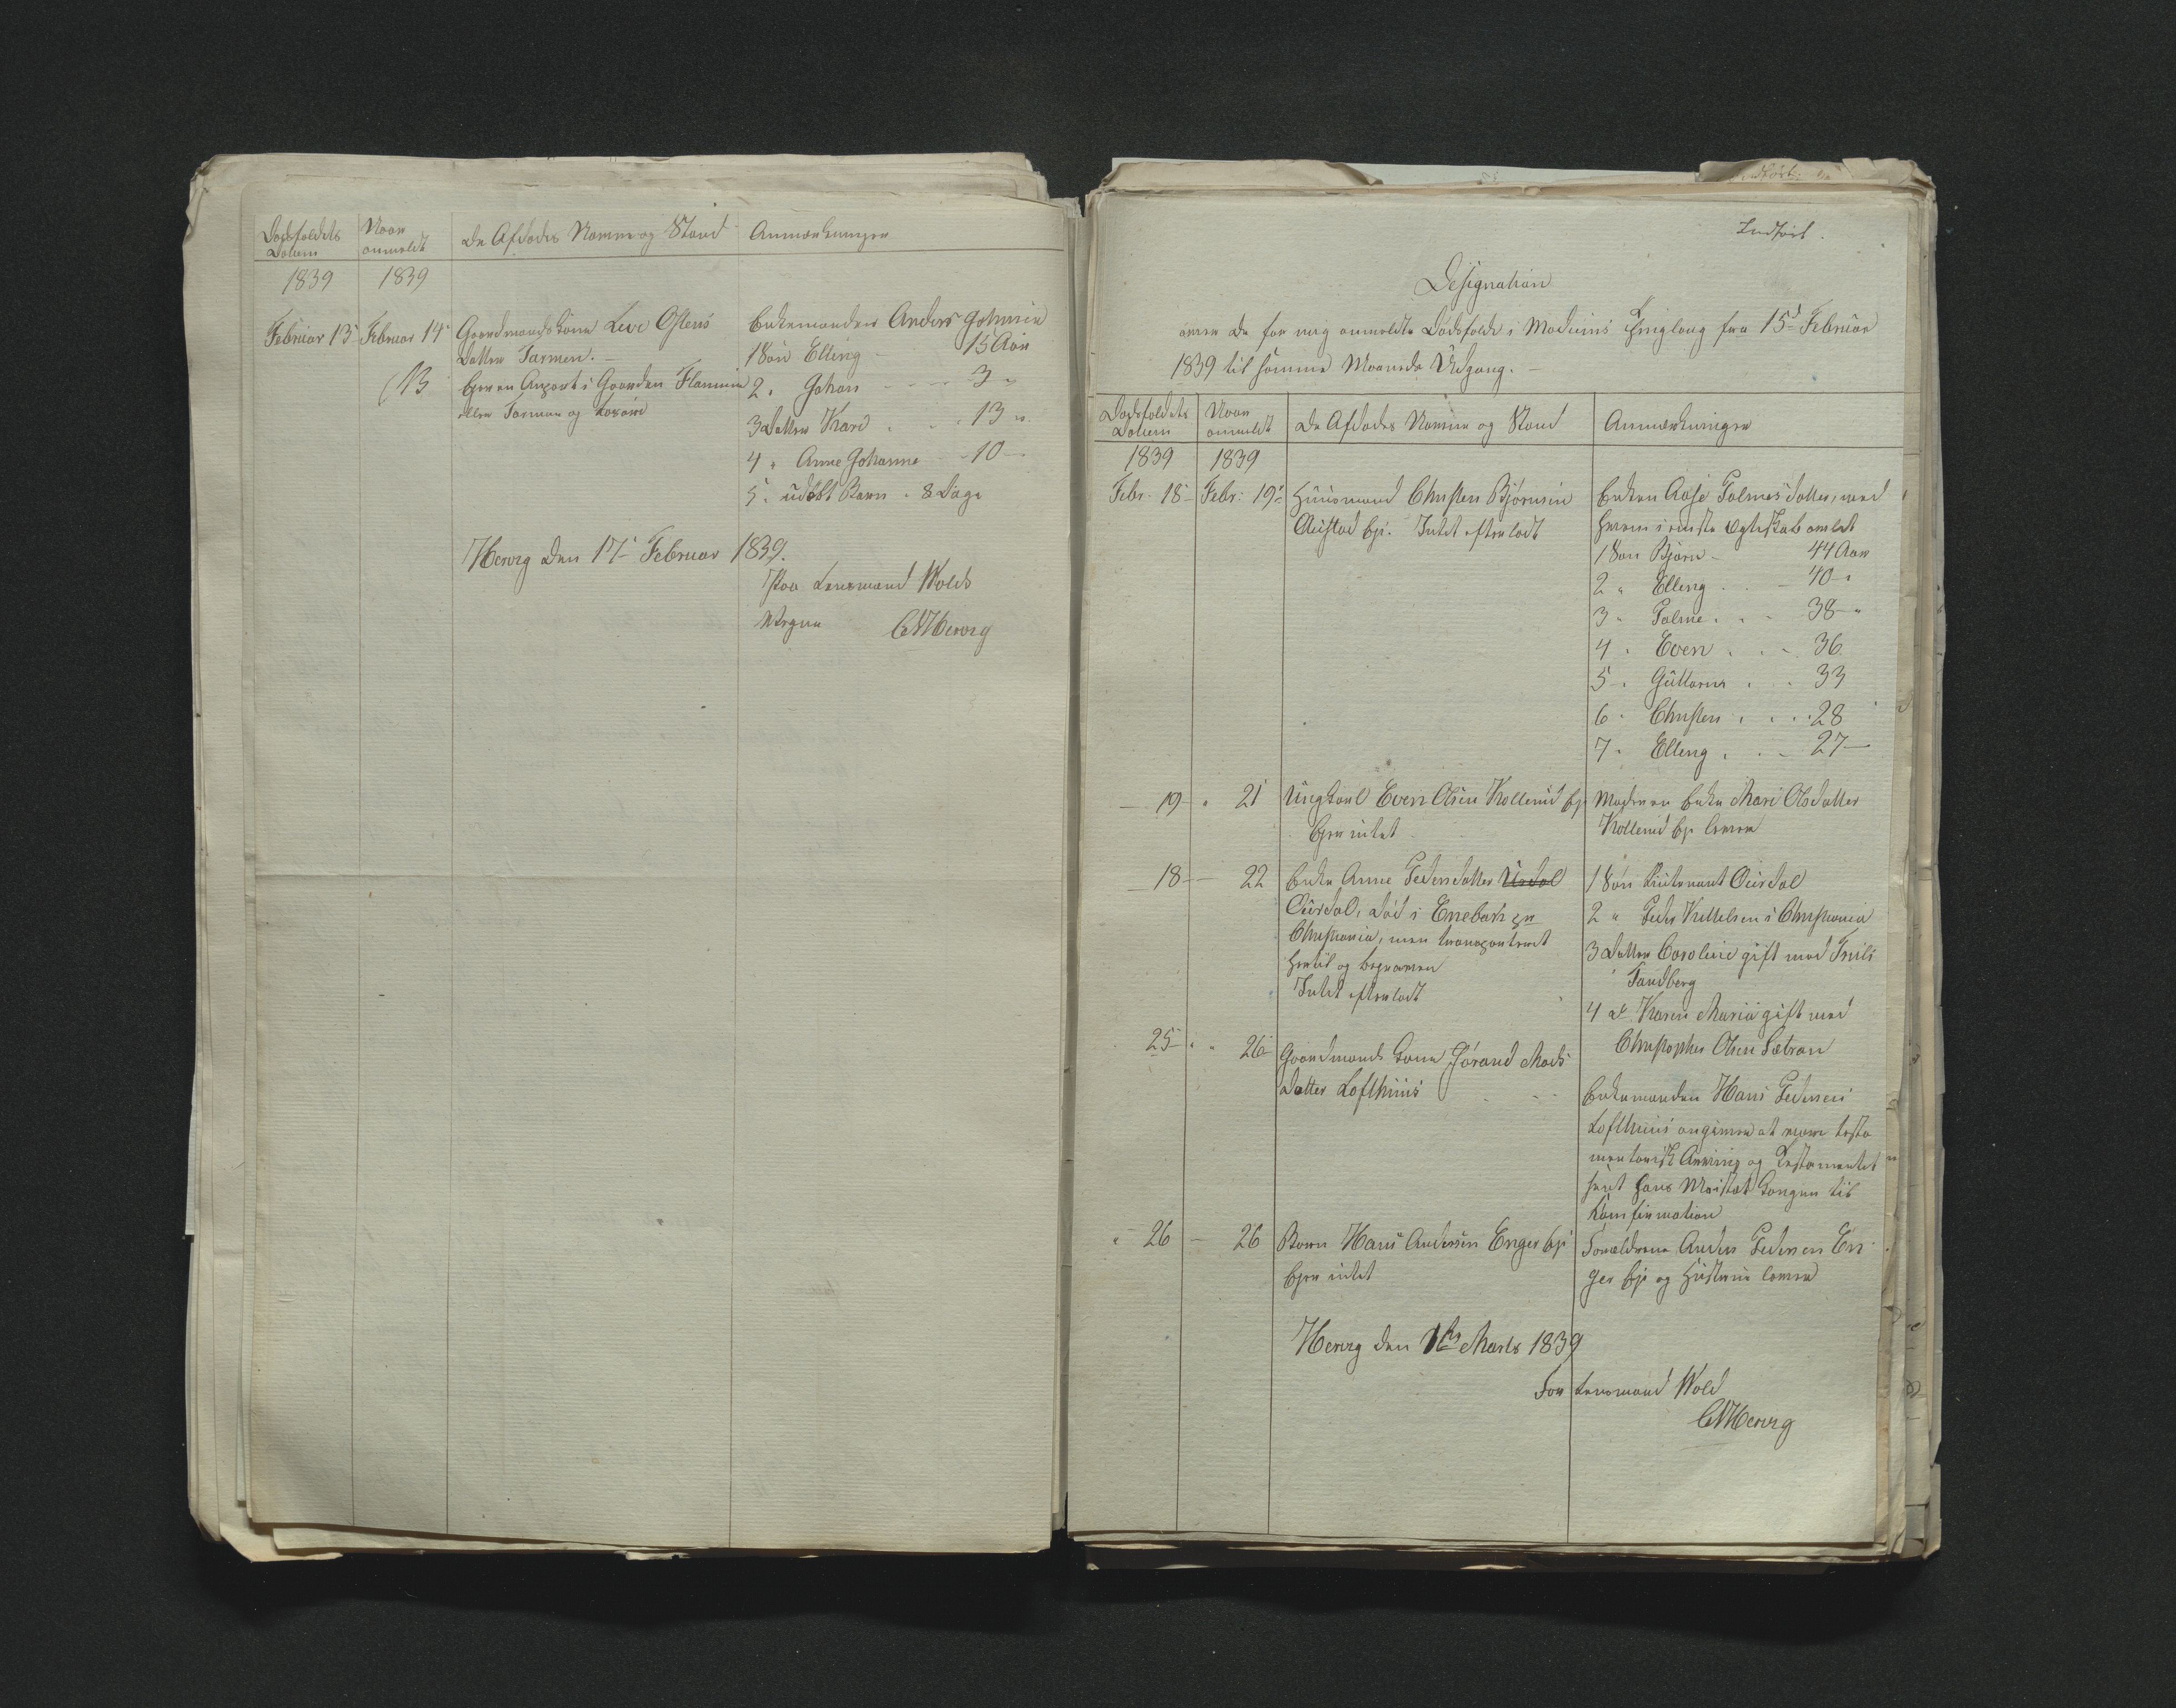 Dødsfaldets Datum
Naar anmeldt
De Afdødes Navne og Stand
Anmærkninger
1839
1839
Februar 13
Februar 14
Gaardmandskone Live Ostens
Datter Farmen. —
13
Eier en Anpart i Gaarden Flannum
eller Farmen og
Enkemanden Anders Johnsen
1 Søn Elling 15 Aar
2 " Johan 3 "
3 Datter Kari 13 "
4 " Anne Johanne 10 —
5. udøbt Barn 8 Dage
Herrg den 17 Februar 1839.
Paa Lensmand Wolds
Vegne CMHerrg
Indført.
Designation
over de for mig anmeldte Dødsfalde i Modums Thinglaug fra 15d Februar
1839 til samme Maaneds Udgang. —
Dødsfaldets Datum
Naar anmeldt
De Afdødes Navne og Stand
Anmærkninger
1839
1839
Febr. 18
Febr: 19
Huusmand Christen Bjørnsen
Austad Ejr. Intet efterladt
Enken Aase Palmesdatter, med
hvem i eneste Egteskab avlet
1 Søn Bjørn — 44 Aar
2 " Elling 40 "
3 " Palme 38 "
4 " Even 36
5 " Guttorm 33
6 " Christen 28
7 " Elling 27 —
— 19 — " 21
Ungkarl Even Olsen Kollerud Ejr
Eier intet
Moderen Enke Mari Olsdatter
Kollerud Ejr lever
— 18 — 22
Enke Anne Pedersdatter Urdal
Ourdal, død i Enebak pr
Christiania, men transporteret
hertil og begraven
Intet efterladt
1 Søn Lieutenant Ourdal
2 " Peder Kittelsen i Christiania
3 Datter Caroline gift med Truls
Sandberg
4 do Karen Maria gift med
Christopher Olsen Sætran
25 " " 26
Gaardmands Kone Jørand Mads
Datter Lofthuus
Enkemanden Hans Pedersen
Lofthuus angiver at være testa
mentarisk Arving og Testamentet
sendt Hans Majestæt Kongen til
Konfirmation
" 26 — 26
Barn Hans Andersen Enger Ejr
Eier intet
Forældrene Anders Pedersen En
ger Ejr og Hustrue lever
Herrg den 1ste Marts 1839
For Lensmand Wold
CMHerrg